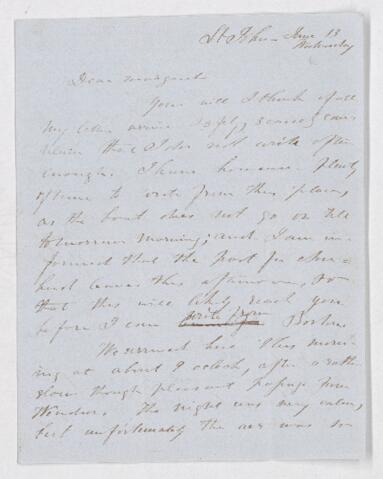 St John June 13
Wednesday
Dear Margaret
You will I think if all
my letters arrive safely, scarcely com
plain that I do not write often
enough. I have however plenty
of time to write from this place,
as the boat does not go on till
tomorrow morning; and I am in-
formed that the post for
leaves this afternoon, so
that this will likely reach you
before I can write from Boston.
We arrived here this morn-
ing at about 9 oclock, after a rather
slow though pleasant passage from
Windsor. The night was very calm,
but unfortunately the air was so